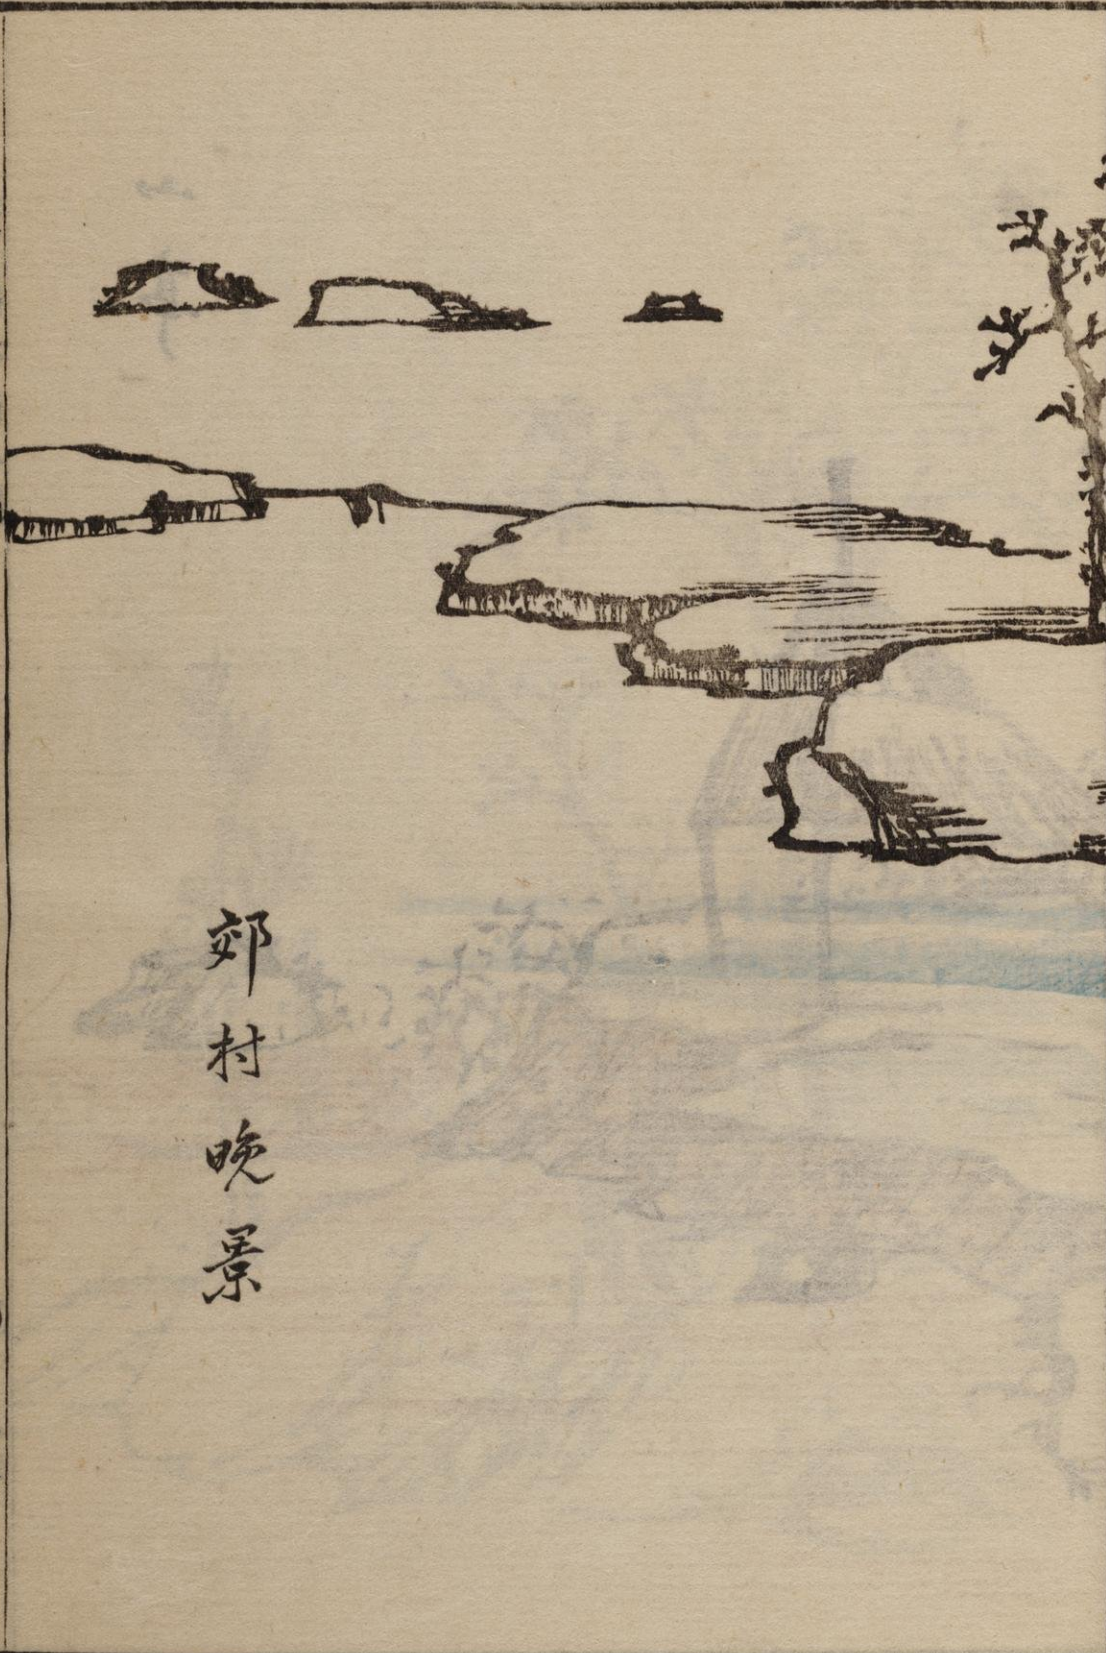 郊村晚景